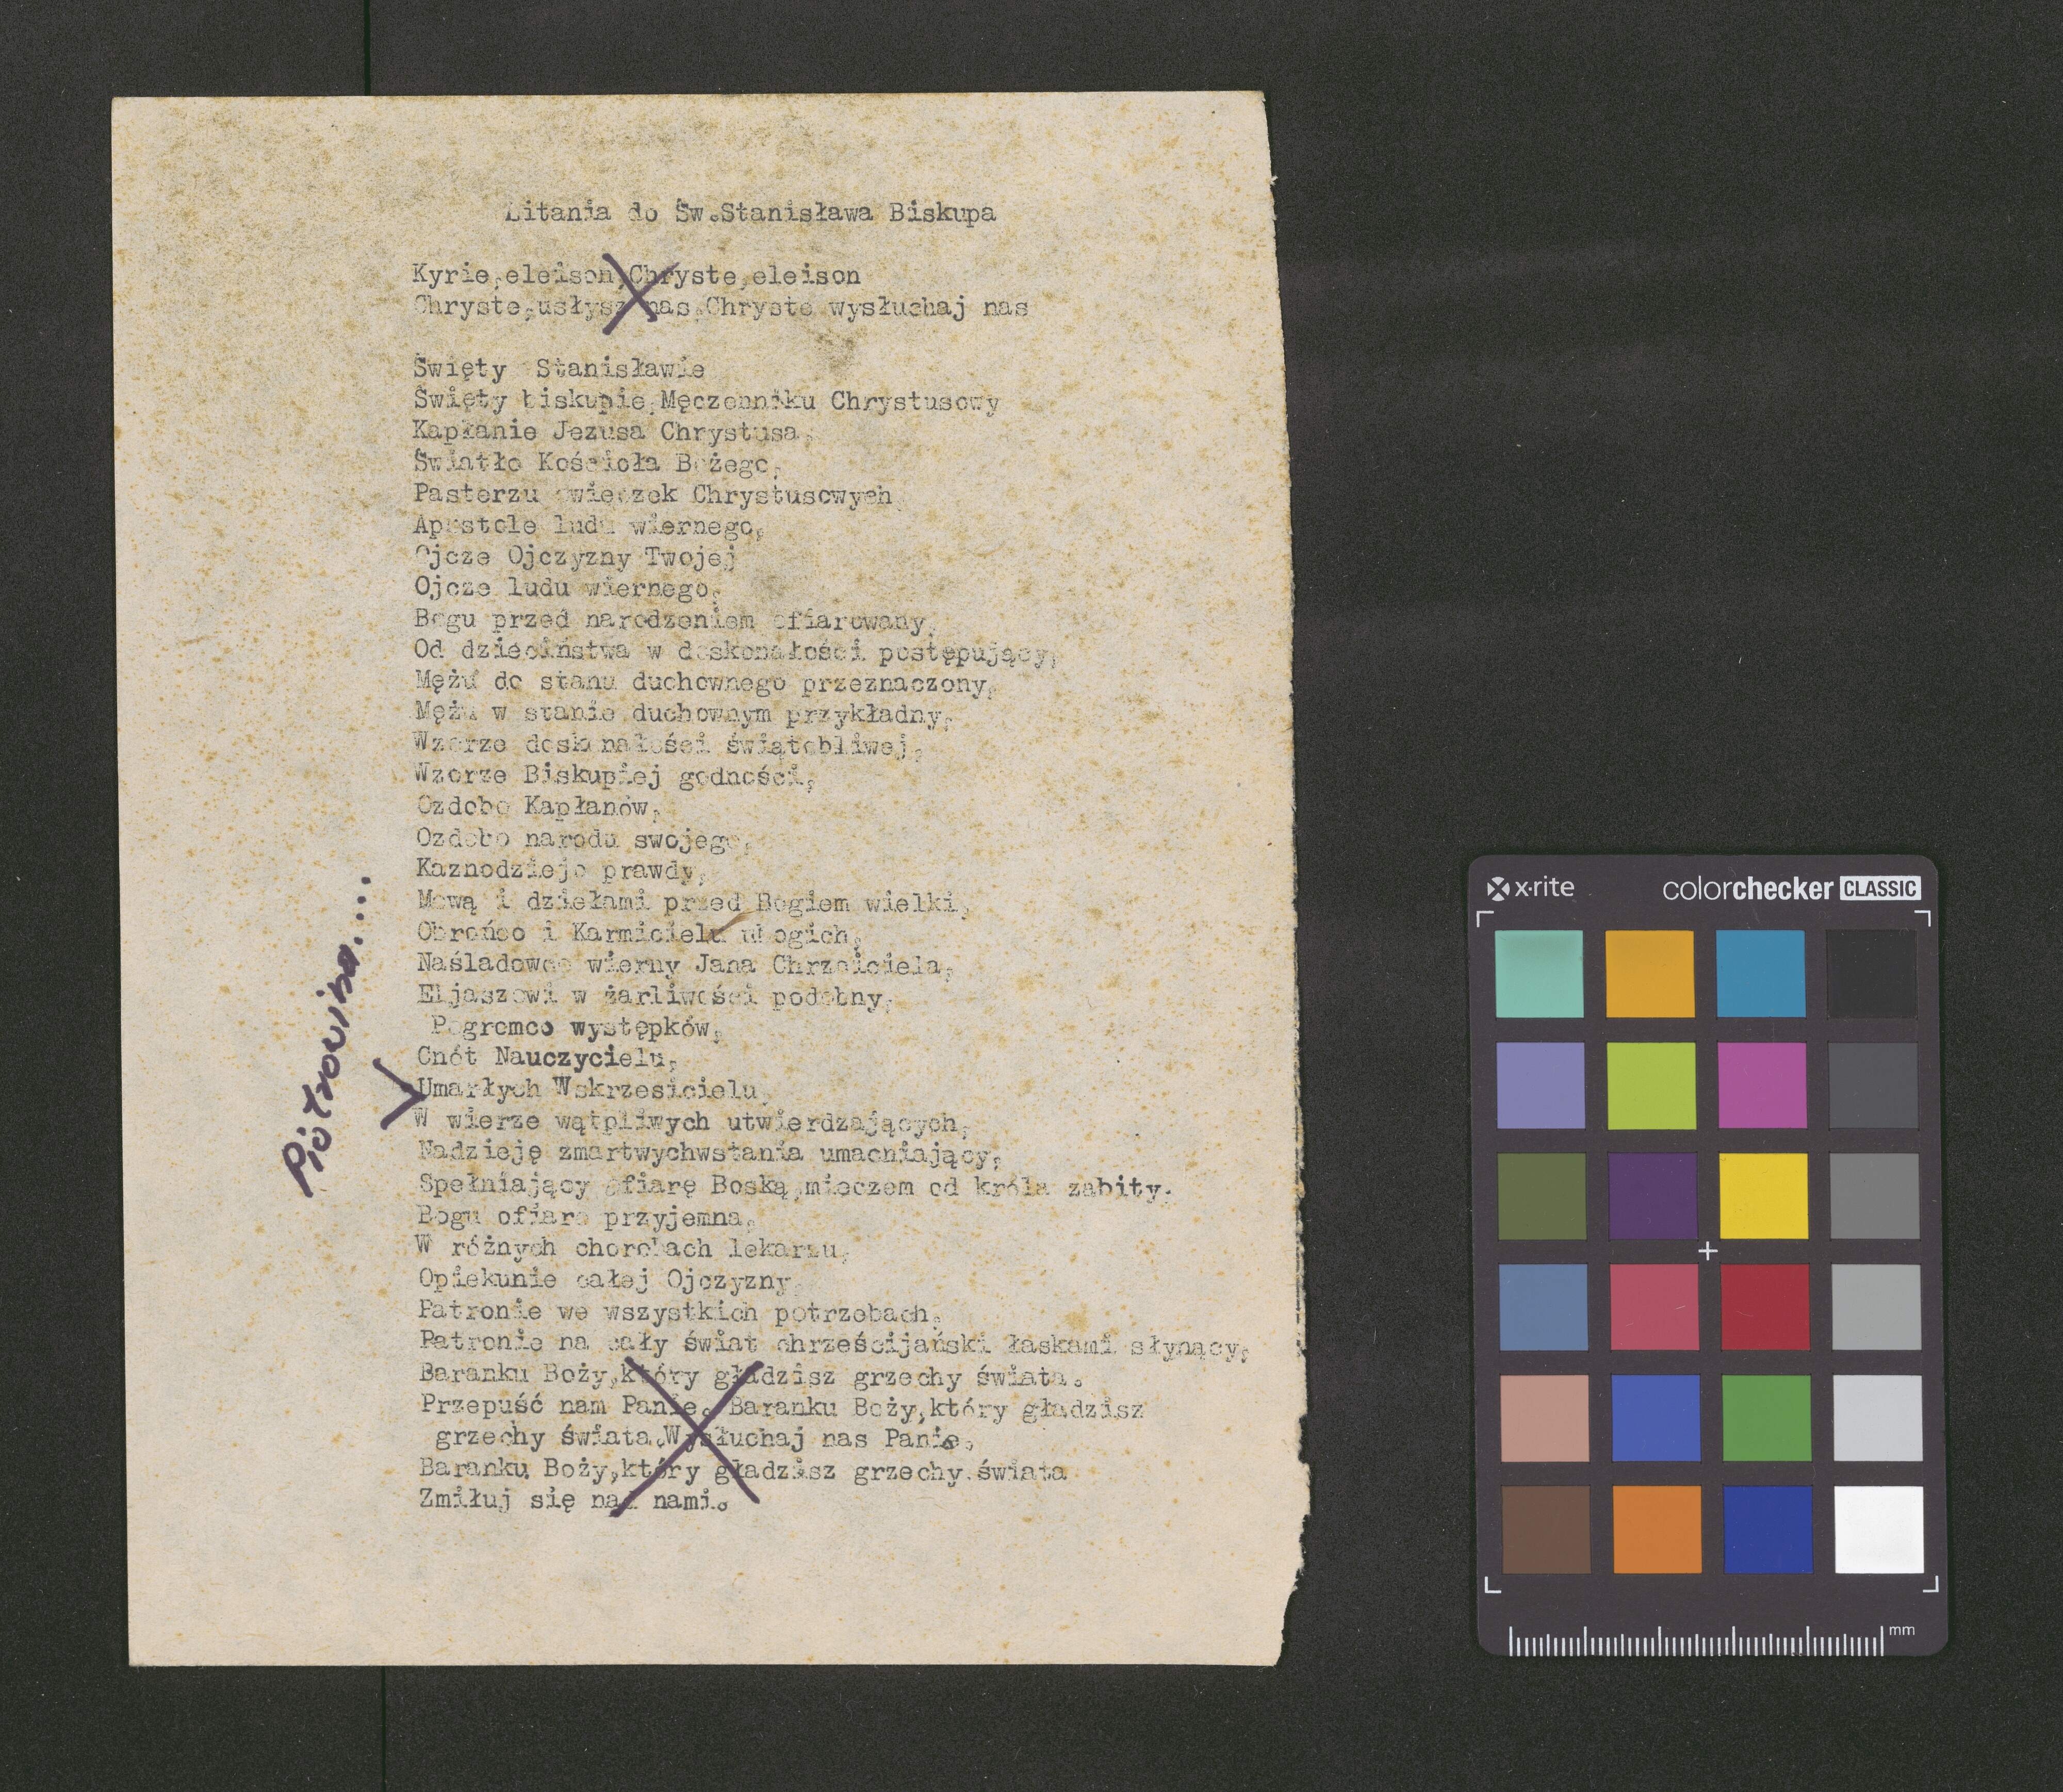 Litania do Św.Stanisława Biskupa
Kyrie,eleison,Chryste,eleison
Chryste,usłysz nas,Chryste wysłuchaj nas
Święty Stanisławie
Święty biskupie,Męczenniku Chrystusowy
Kapłanie Jezusa Chrystusa,
Światło Kościoła Bożego,
Pasterzu owieczek Chrystusowych
Apostole ludu wiernego,
Ojcze Ojczyzny Twojej
Ojcze ludu wiernego,
Bogu przed narodzeniem ofiarowany,
Od dzieciństwa w doskonałości postępujący,
Mężu do stanu duchownego przeznaczony,
Mężu w stanie duchownym przykładny,
Wzorze doskonałości świątobliwej,
Wzorze Biskupiej godności,
Ozdobo Kapłanów,
Ozdobo narodu swojego,
Kaznodziejo prawdy,
Mową i dziełami przed Bogiem wielki,
Obrońco i Karmicielu ubogich,
Naśladowco wierny Jana Chrzciciela,
Eljaszowi w żarliwości podobny,
Pogromco występków,
Cnót Nauczycielu,
Piotrowina....
Umarłych Wskrzesicielu,
W wierze wątpliwych utwierdzających,
Nadzieję zmartwychwstania umacniający,
Spełniający ofiarę Boską,mieczem od króla zabity,
Bogu ofiaro przyjemna,
W różnych chorobach lekarzu,
Opiekunie całej Ojczyzny,
Patronie we wszystkich potrzebach,
Patronie na cały świat chrześcijański łaskami słynący,
Baranku Boży,który gładzisz grzechy świata.
Przepuść nam Panie. Baranku Boży,który gładzisz
grzechy świata.Wysłuchaj nas Panie,
Baranku Boży,który gładzisz grzechy świata
Zmiłuj się nad nami.
x-rite colorchecker CLASSIC
mm